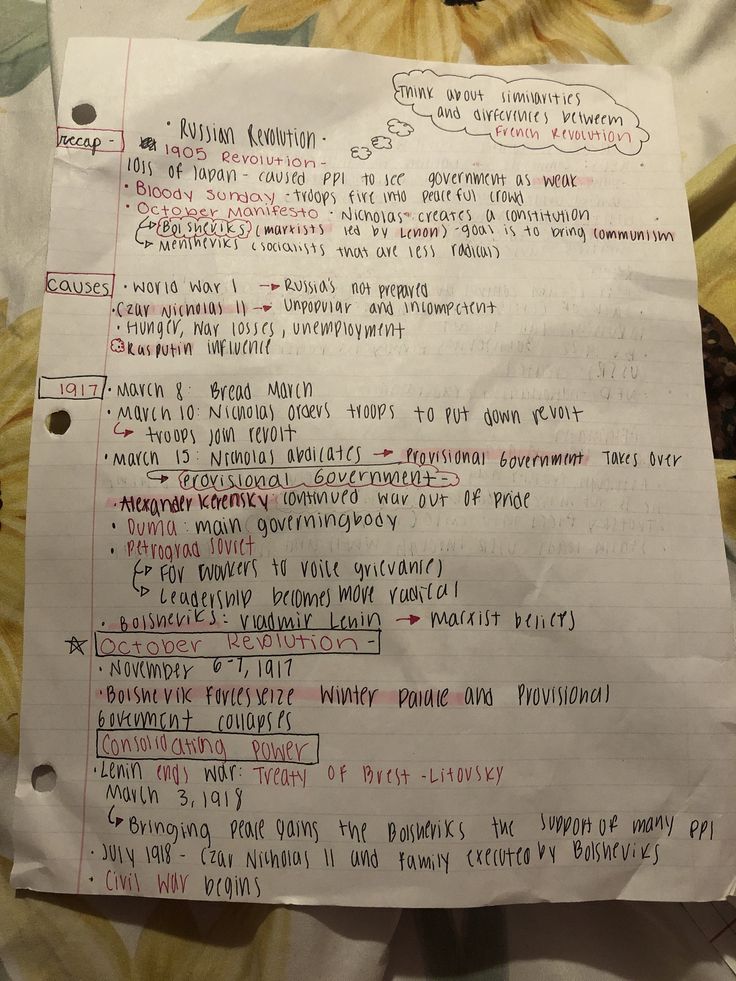 Think about similarities
and differences between
French Revolution
• Russian Revolution •
recap -
1905 Revolution -
loss of Japan - caused ppl to see government as weak
• Bloody Sunday - troops fire into peaceful crowd
• October Manifesto • Nicholas creates a constitution
Bolsheviks (marxists led by Lenon) - goal is to bring communism
Mensheviks (socialists that are less radical)
causes
• World War I → Russia's not prepared
• Czar Nicholas II → Unpopular and incompetent
• Hunger, War losses, unemployment
Rasputin influence
1917
• March 8: Bread March
• March 10: Nicholas orders troops to put down revolt
troops join revolt
• March 15: Nicholas abdicates → Provisional Government Takes over
Provisional Government -
• Alexander Kerensky continued war out of pride
• Duma: main governingbody
• Petrograd Soviet
For workers to voice grievances
Leadership becomes more radical
• Bolsheviks: Vladmir Lenin → Marxist beliefs
October Revolution -
• November 6-7, 1917
• Bolshevik forces seize Winter Palace and Provisional
Government collapses
Consolidating Power
• Lenin ends war: Treaty of Brest-Litovsky
March 3, 1918
Bringing peace gains the Bolsheviks the support of many ppl
• July 1918 - Czar Nicholas II and family executed by Bolsheviks
• Civil War begins